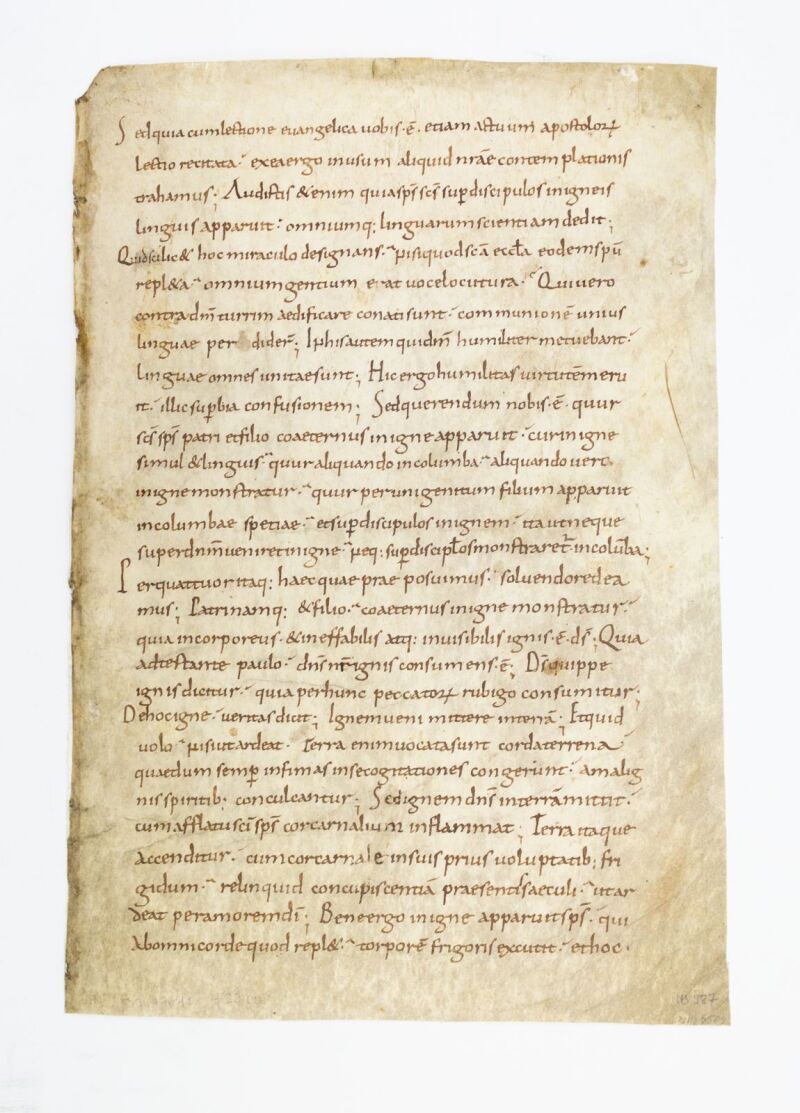 Sed quia cum lectione evangelica vobis · ē · etiam actuum apostoloꝝ
lectio recitata · ex ea ergo in usum aliquid nrāe contemplationis
trahamus; Audistis & enim quia sps̄ scs̄ sup̄ discipulos in igneis
linguis apparuit · omniumq; linguarum scientiam dedit;
Quid scilic& hoc miraculo designans · nisi quod scā ecclā eodem spū
repl&a · omnium gentium erat voce locutura · Qui vero
contra dm̄ turrim aedificare conati sunt · communionē unius
linguae perdider̄; In his autem qui dm̄ humiliter metuebant ·
linguae omnes unitae sunt; Hic ergo humilitas virtutē meru
it · illic sup̄bia confusionem; Sed querendum nobis · ē · quur
scs̄ sps̄ patri et filio coaeternus in igne apparuit · cur in igne
simul & linguis · quur aliquando in columba · aliquando vero
in igne monstratur · quur per unigenitum filium apparuit
in columbae spetiae · et sup̄ discipulos in ignem · ita ut neque
super dnm̄ veniret in igne · neq; sup̄ discipłos monstraret̄ in colūba;
Per quattuor itaq; haec quae praeposuimus · solvendo redea
mus; Patri namq; & filio · coaeternus in igne monstratur ·
quia incorporeus · & ineffabilis atq; invisibilis ignis · ē · ds̄; Quia
adtestante paulo · dns̄ nr̄ ignis consumens · ē; Ds̄ quippe
ignis dicitur · quia per hunc peccatoꝝ rubigo consumitur;
De hoc igne · veritas dicit; Ignem veni mittere in terrā; Et quid
volo · nisi ut ardeat · Terra enim vocata sunt corda terrena
quae dum semp̄ infimas in se cogitationes congerunt · a malig
nis spiritib; conculcantur; Sed ignem dns̄ in terrā mittit ·
cum afflatu scī sps̄ cor carnalium inflammat; Terra itaque
accenditur · cum cor carnale in suis prius voluptatib; fri
gidum · relinquid concupiscentiā praesentis saeculi · ut ar
deat per amorem di̅; Bene ergo in igne apparuit sps̄ · qui
ab omni corde quod repl&· torporē frigoris excutit · et hoc ·